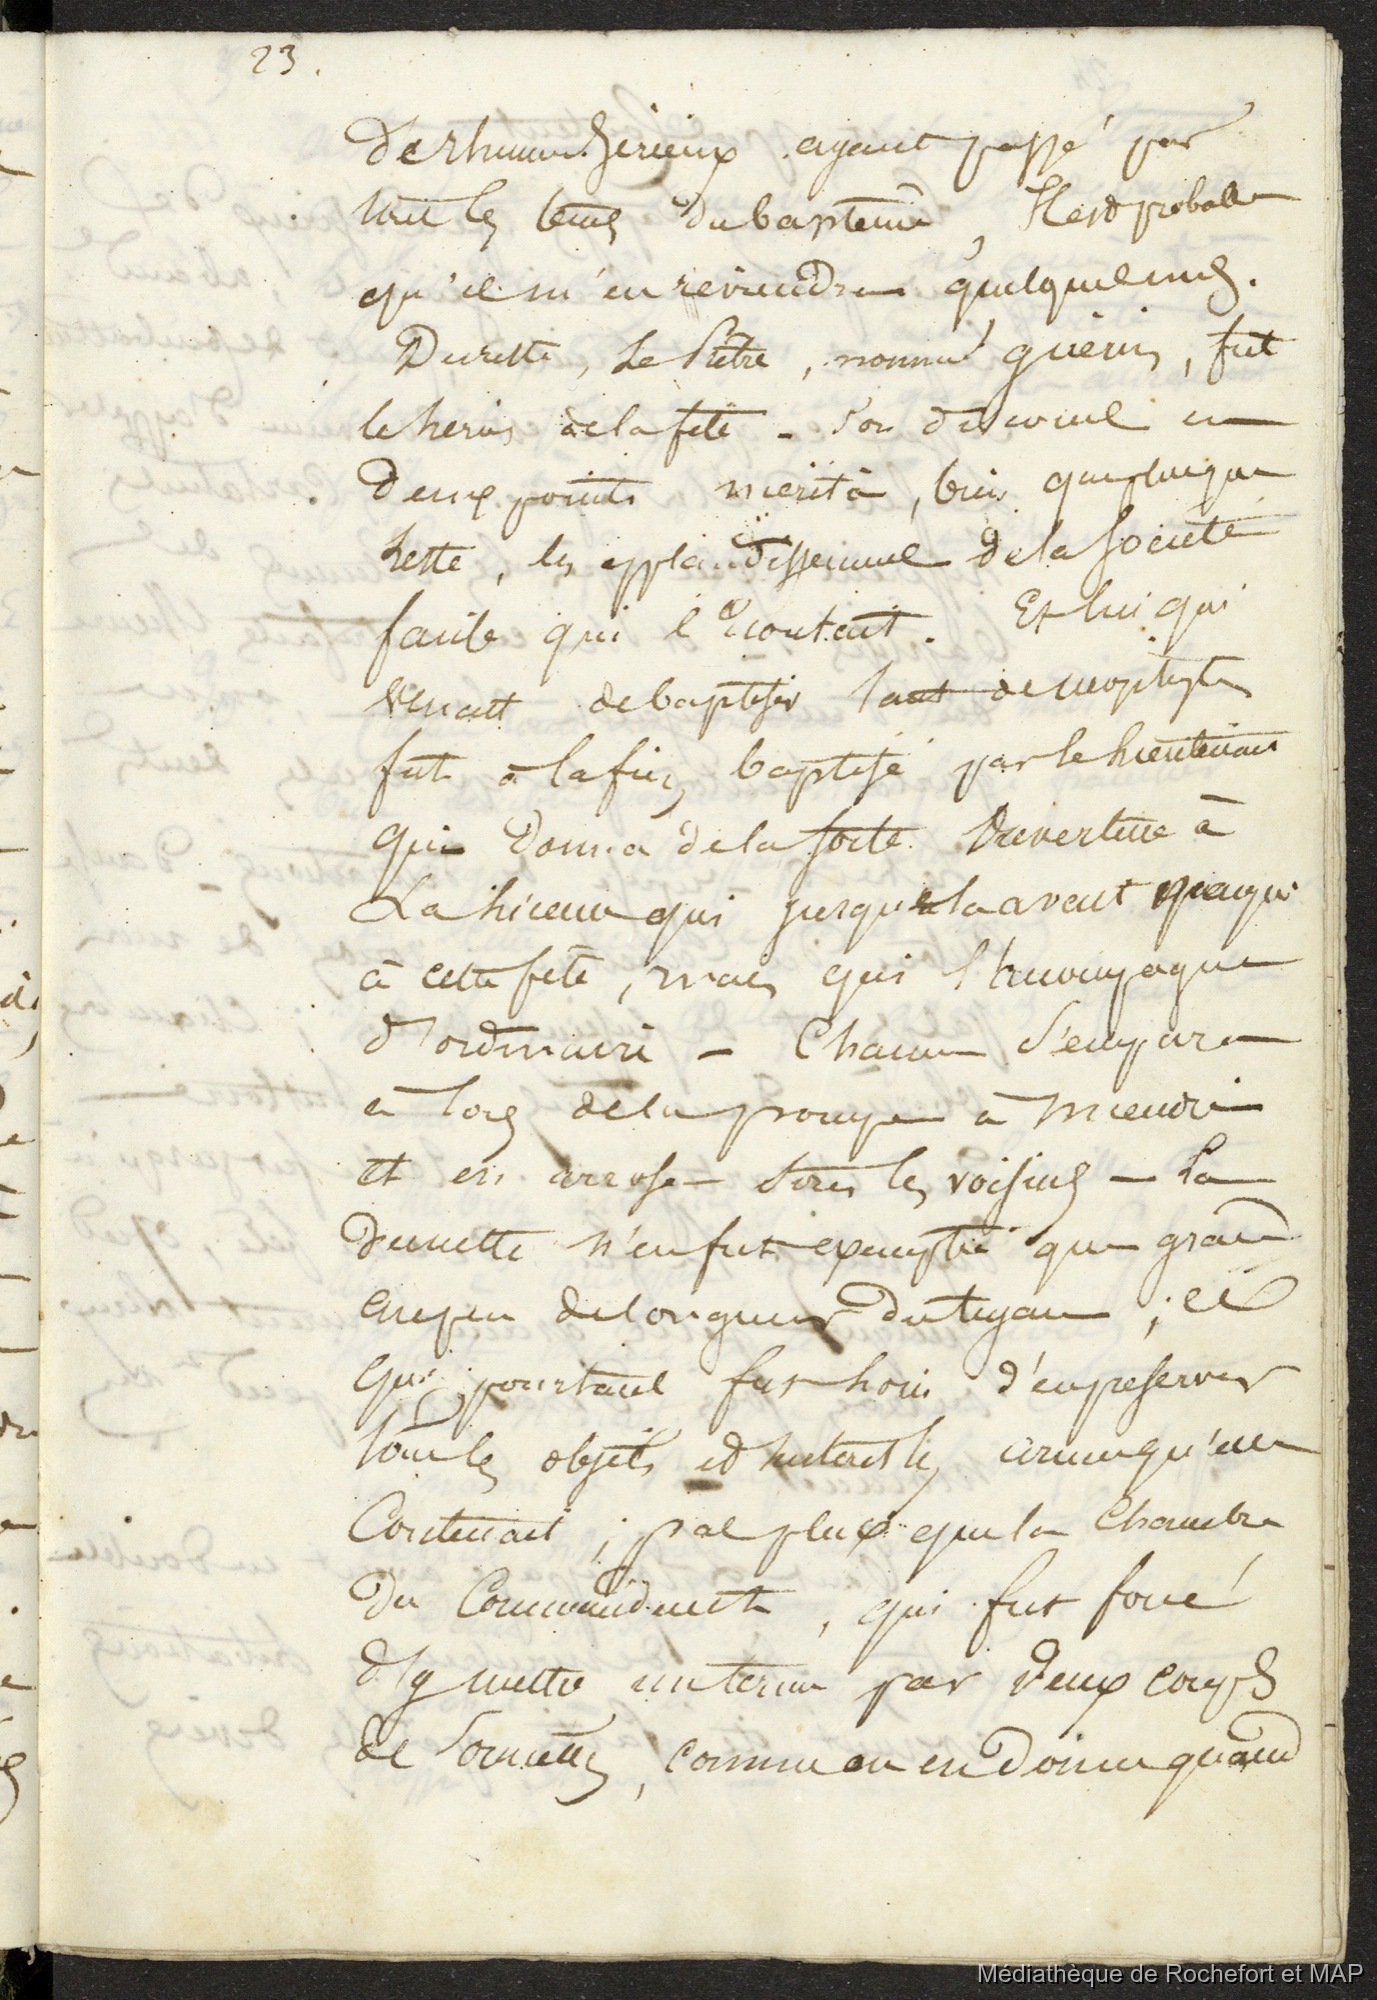 23.
ayant passé par
tous les tems du baptême, Il est probable
qu'il m'en reviendra quelqu'unes.
Du reste, Le Prêtre, nommé guérin, fut
le heros de la fête - Son discours en
deux points mérita, bien que presque
leste, les applaudissemens de la société
facile qui l'Ecoutait. Et lui qui
venait de baptiser tant de neophytes
fut à la fin, baptisé par le lieutenant
qui donna de la sorte l'ouverture à
La licence qui jusque la avait manqué
à cette fête, mais qui l'accompagne
d'ordinaire - Chacun s'empara
alors de la pompe à incendie
et en arrosa tous les voisins - La
dunette n'en fut exemptée que grace
au peu de longueur du tuyau ; ce
qui pourtant fut loin d'en preserver
tous les objets et
Contenait ; pas plus que la chambre
du Commandant, qui fut forcé
d'y mettre un terme par deux coups
de sonnette, comme on en donne quand
Médiathèque de Rochefort et MAP